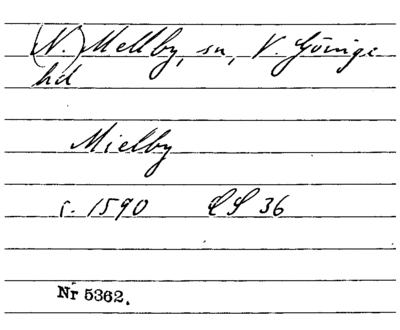 (N.) Mellby, sn, V. Göinge
hd
Mielby
c. 1590 LS 36
Nr 5362.